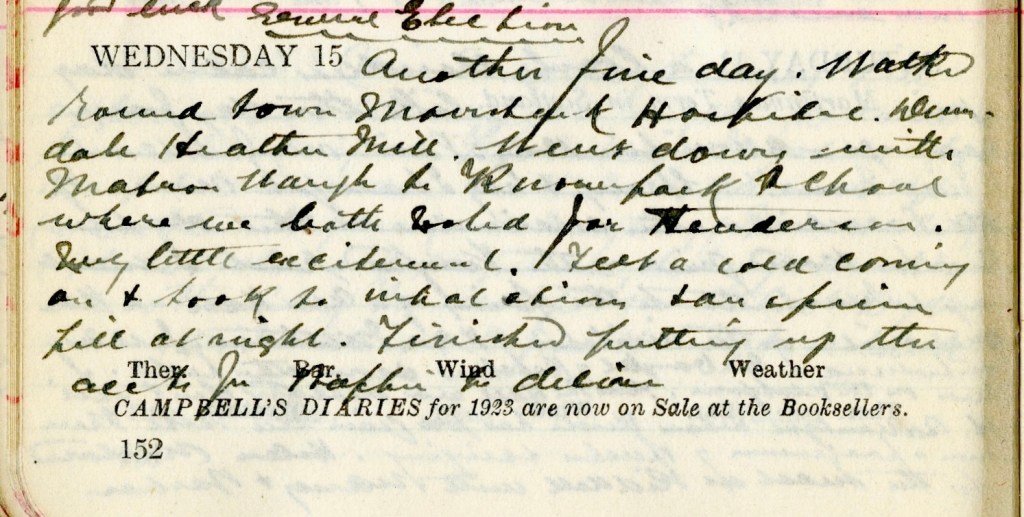 good luck General Election
WEDNESDAY 15 Another fine day. Walked
round town Hospital.
dale Heather Mill. Went down with
Matron Waugh to Knowepark School
where we both voted for Henderson.
Very little excitement. Feel a cold coming
on & took to inhalations & an opium
pill at night. Finished putting up the
Ther. Bar. Wind Weather
accts for to deliver
CAMPBELL'S DIARIES for 1923 are now on Sale at the Booksellers.
152